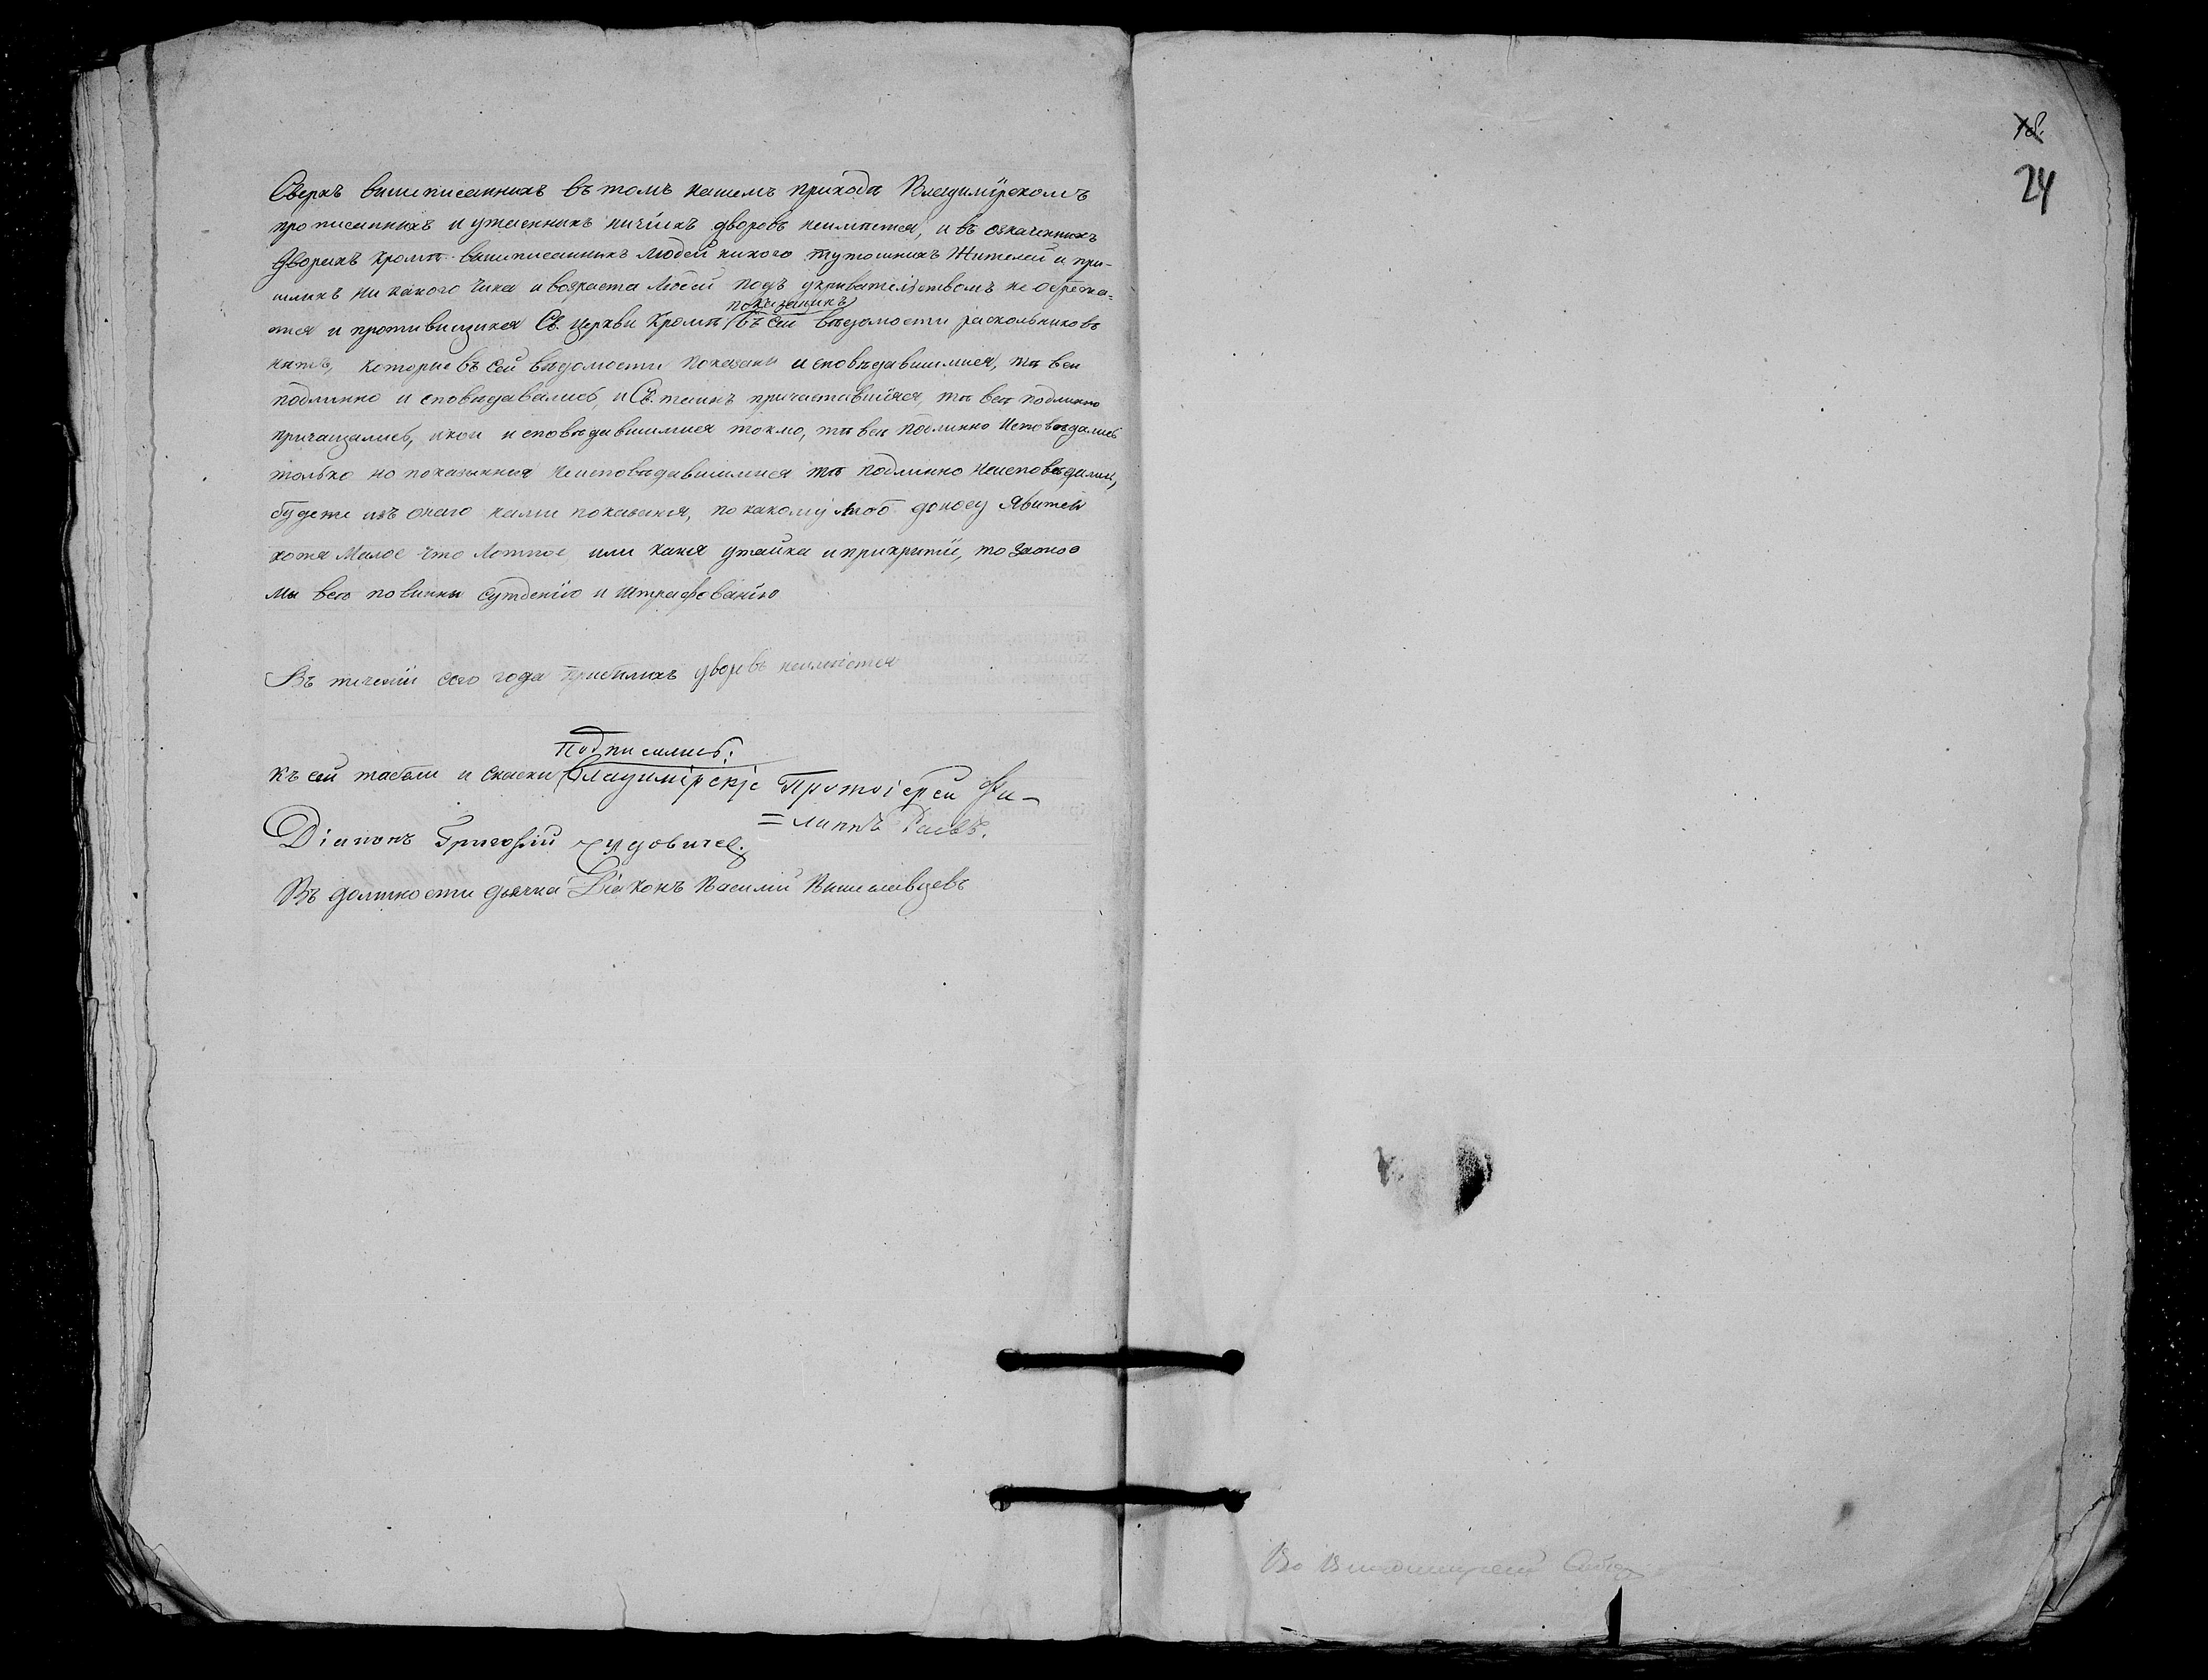 Сверхъ вышеписанныхъ въ томъ нашемъ приходѣ Владимїрскомъ
прописанныхъ и утаенныхъ ничїихъ дворовъ неимѣется, и въ означенныхъ
дворахъ кромѣ вышеписанныхъ людей никого тутошнихъ Жителей и при-
шлыхъ ни какого чина и возраста людей подъ укрывательствомъ не обрѣта-
показанныхъ
ется и противящихся Св. церкви кромѣ въ сей вѣдомости раскольниковъ
нѣтъ, которые въ сей вѣдомости показаны исповѣдавшимися, тѣ вси
подлинно исповѣдавались, и Св. таинъ причаставшїяся, тѣ всѣ подлинно
причащались, и кои исповѣдавшимися токмо, тѣ вси подлинно исповѣдались
только но показанныя неисповѣдавшимися тѣ подлинно неисповѣдались,
будеже изъ онаго нами показанія, по какому либо доносу явится
хотя малое что ложное, или какая утайка и прикрытїе, то за оное
мы всѣ повинны сужденїю и штрафованїю
Въ теченїи сего года прибылыхъ дворовъ неимѣется
Подписались:
Къ сей табели и сказки Владимірскіе Протоіерей Фи-
=липпъ
Діаконъ Григорій
Въ должности дьячка Діаконъ Василій Вышеславцевъ
18.
24
Во